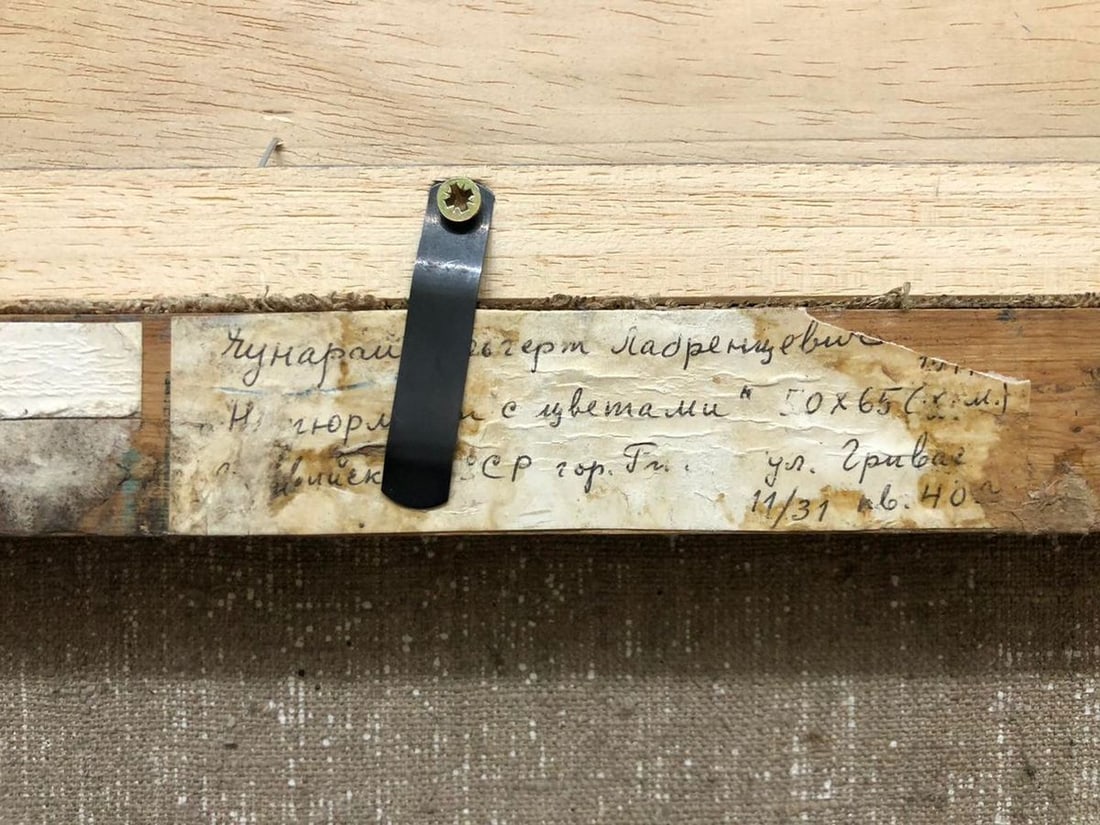 Чунарай ьгерт Лавренцевич
Н тюрм с цветами" 50х65 (х.м.)
вийск СР гор. Ри ул. Гривас
11/31 кв. 40